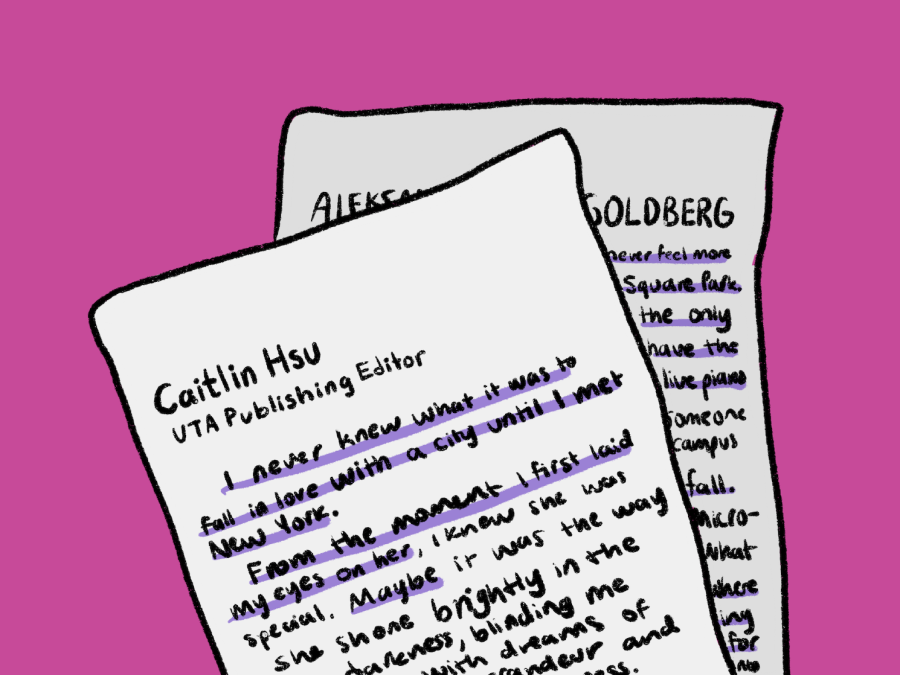 Caitlin Hsu
UTA Publishing Editor
I never knew what it was to
fall in love with a city until I met
New York.
From the moment I first laid
my eyes on her, I knew she was
special. Maybe it was the way
she shone brightly in the
darkness, blinding me
with dreams of
grandeur and
GOLDBERG
never feel more
Square Park.
the only
have the
live piano
someone
campus
fall.
Micro-
What
where
ing
for